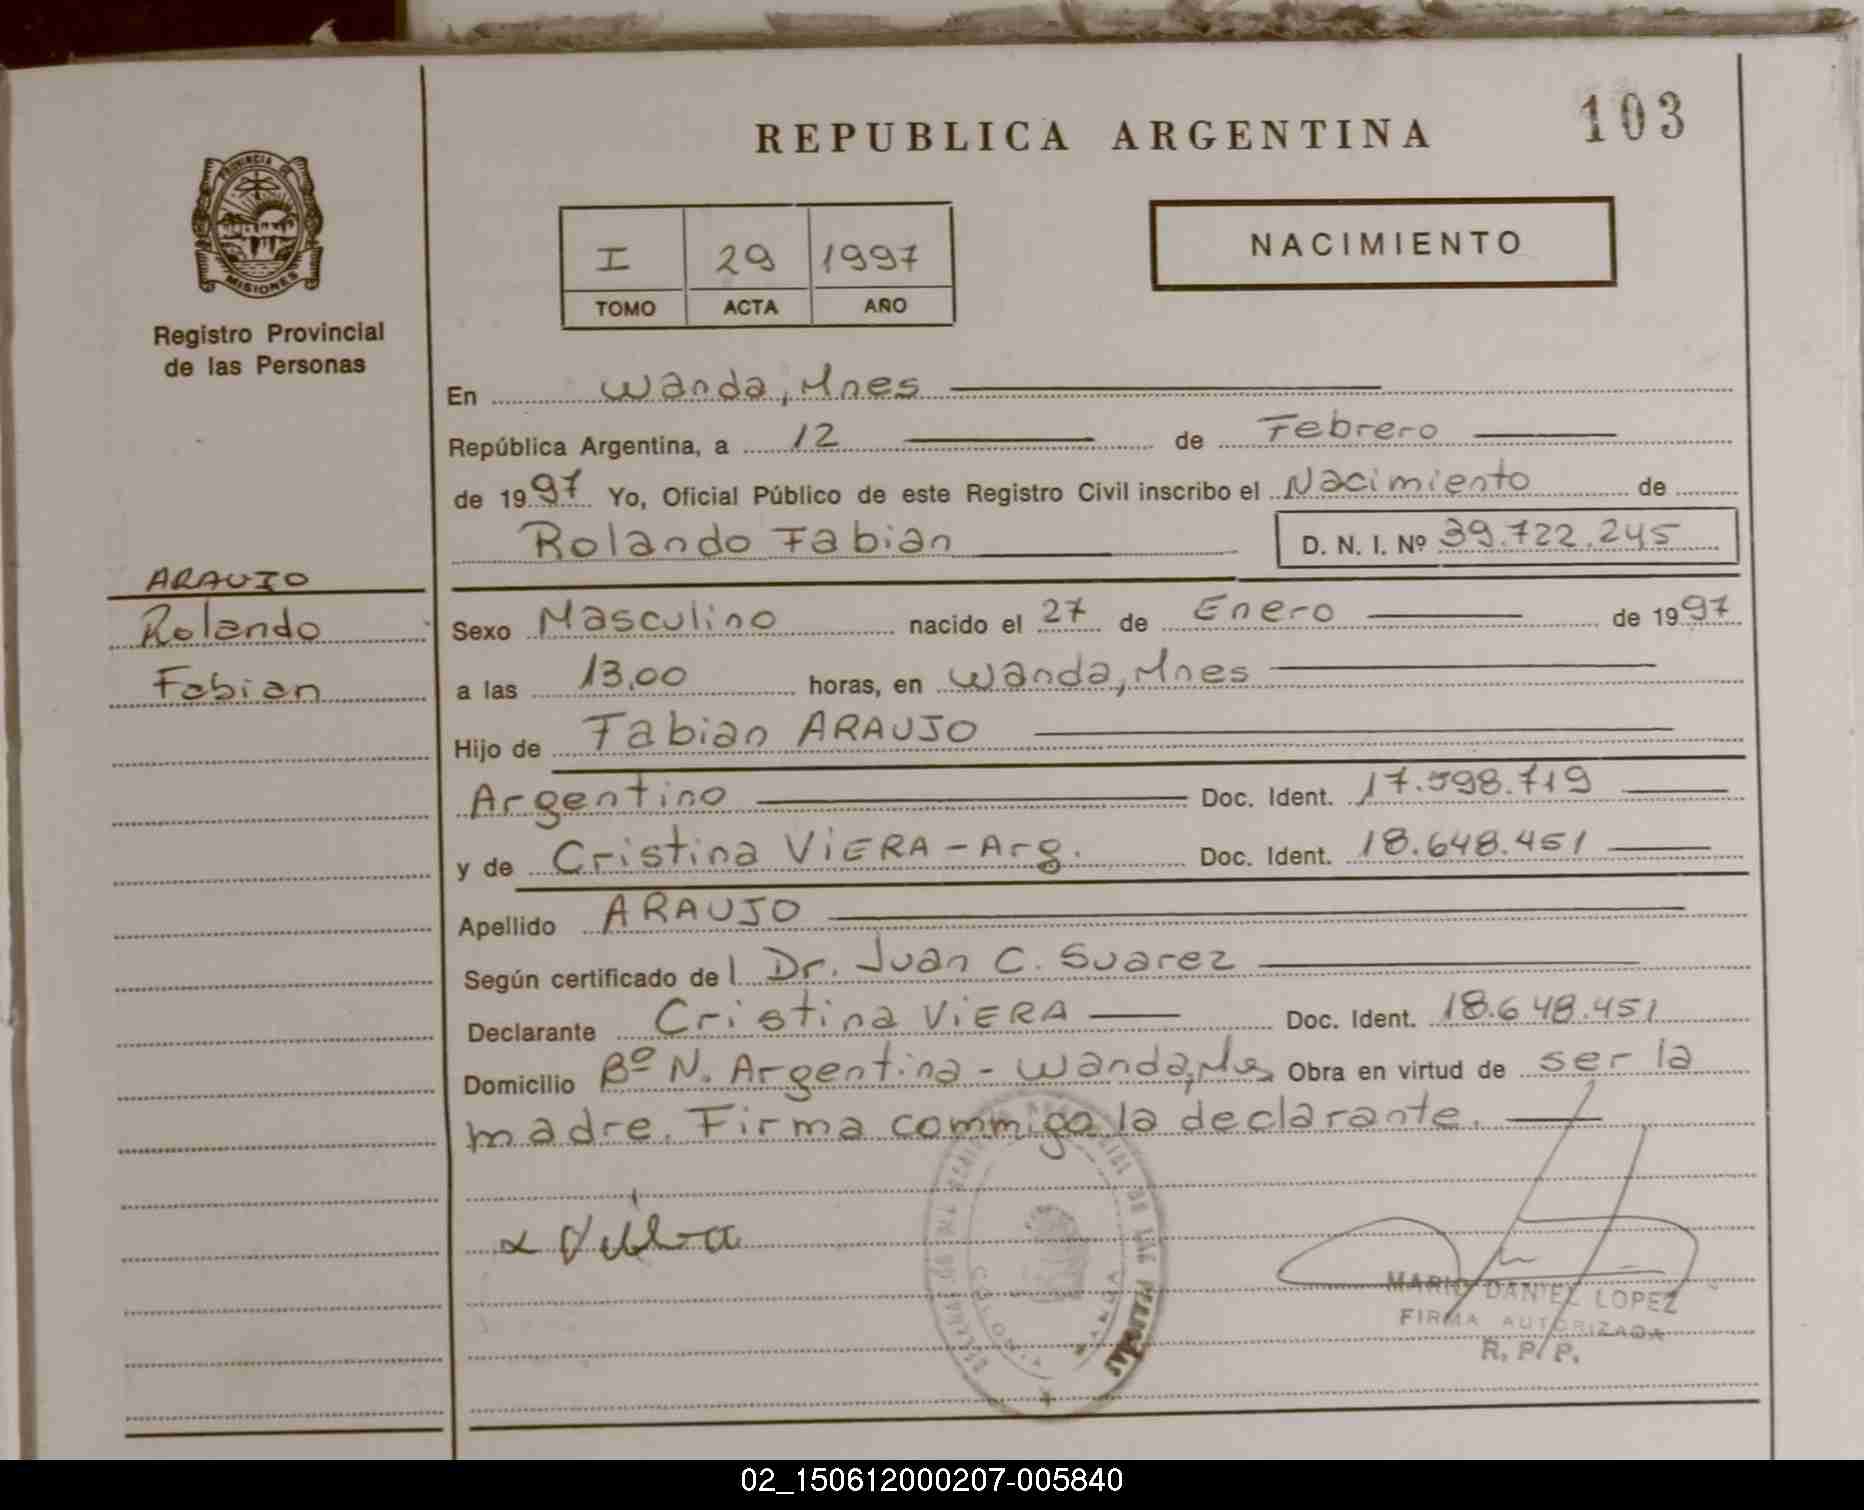 REPUBLICA ARGENTINA
103
PROVINCIA DE
MISIONES
Registro Provincial
de las Personas
I 29 1997
TOMO ACTA AÑO
NACIMIENTO
En Wanda, Mnes
República Argentina, a 12 de Febrero
de 1997 Yo, Oficial Público de este Registro Civil inscribo el Nacimiento de
Rolando Fabian D. N. I. Nº 39.722.245
ARAUJO
Rolando
Fabian
Sexo Masculino nacido el 27 de Enero de 1997
a las 13,00 horas, en Wanda, Mnes
Hijo de Fabian ARAUJO
Argentino Doc. Ident. 17.598.719
y de Cristina ViERA - Arg. Doc. Ident. 18.648.451
Apellido ARAUJO
Según certificado del Dr. Juan C. Suarez
Declarante Cristina ViERA Doc. Ident. 18.648.451
Domicilio Bº N. Argentina - Wanda, Mnes Obra en virtud de ser la
madre. Firma commigo la declarante.
COLONIA WANDA
MARIO DANIEL LOPEZ
FIRMA AUTORIZADA
R. P. P.
02_150612000207-005840